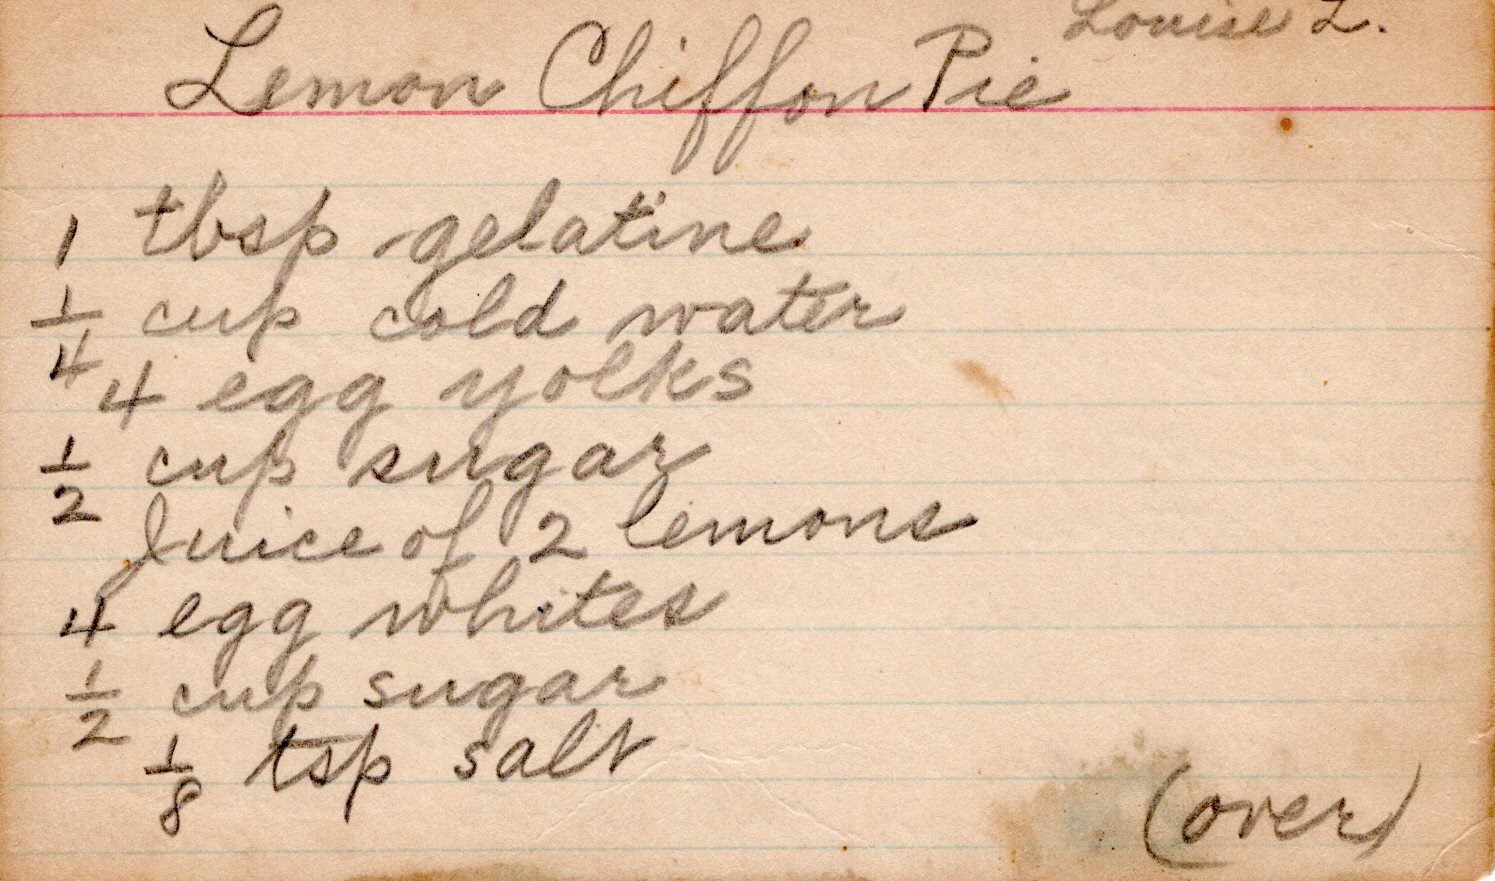 Louise L.
Lemon Chiffon Pie
1 tbsp gelatine
1/4 cup cold water
4 egg yolks
1/2 cup sugar
Juice of 2 lemons
4 egg whites
1/2 cup sugar
1/8 tsp salt
(over)